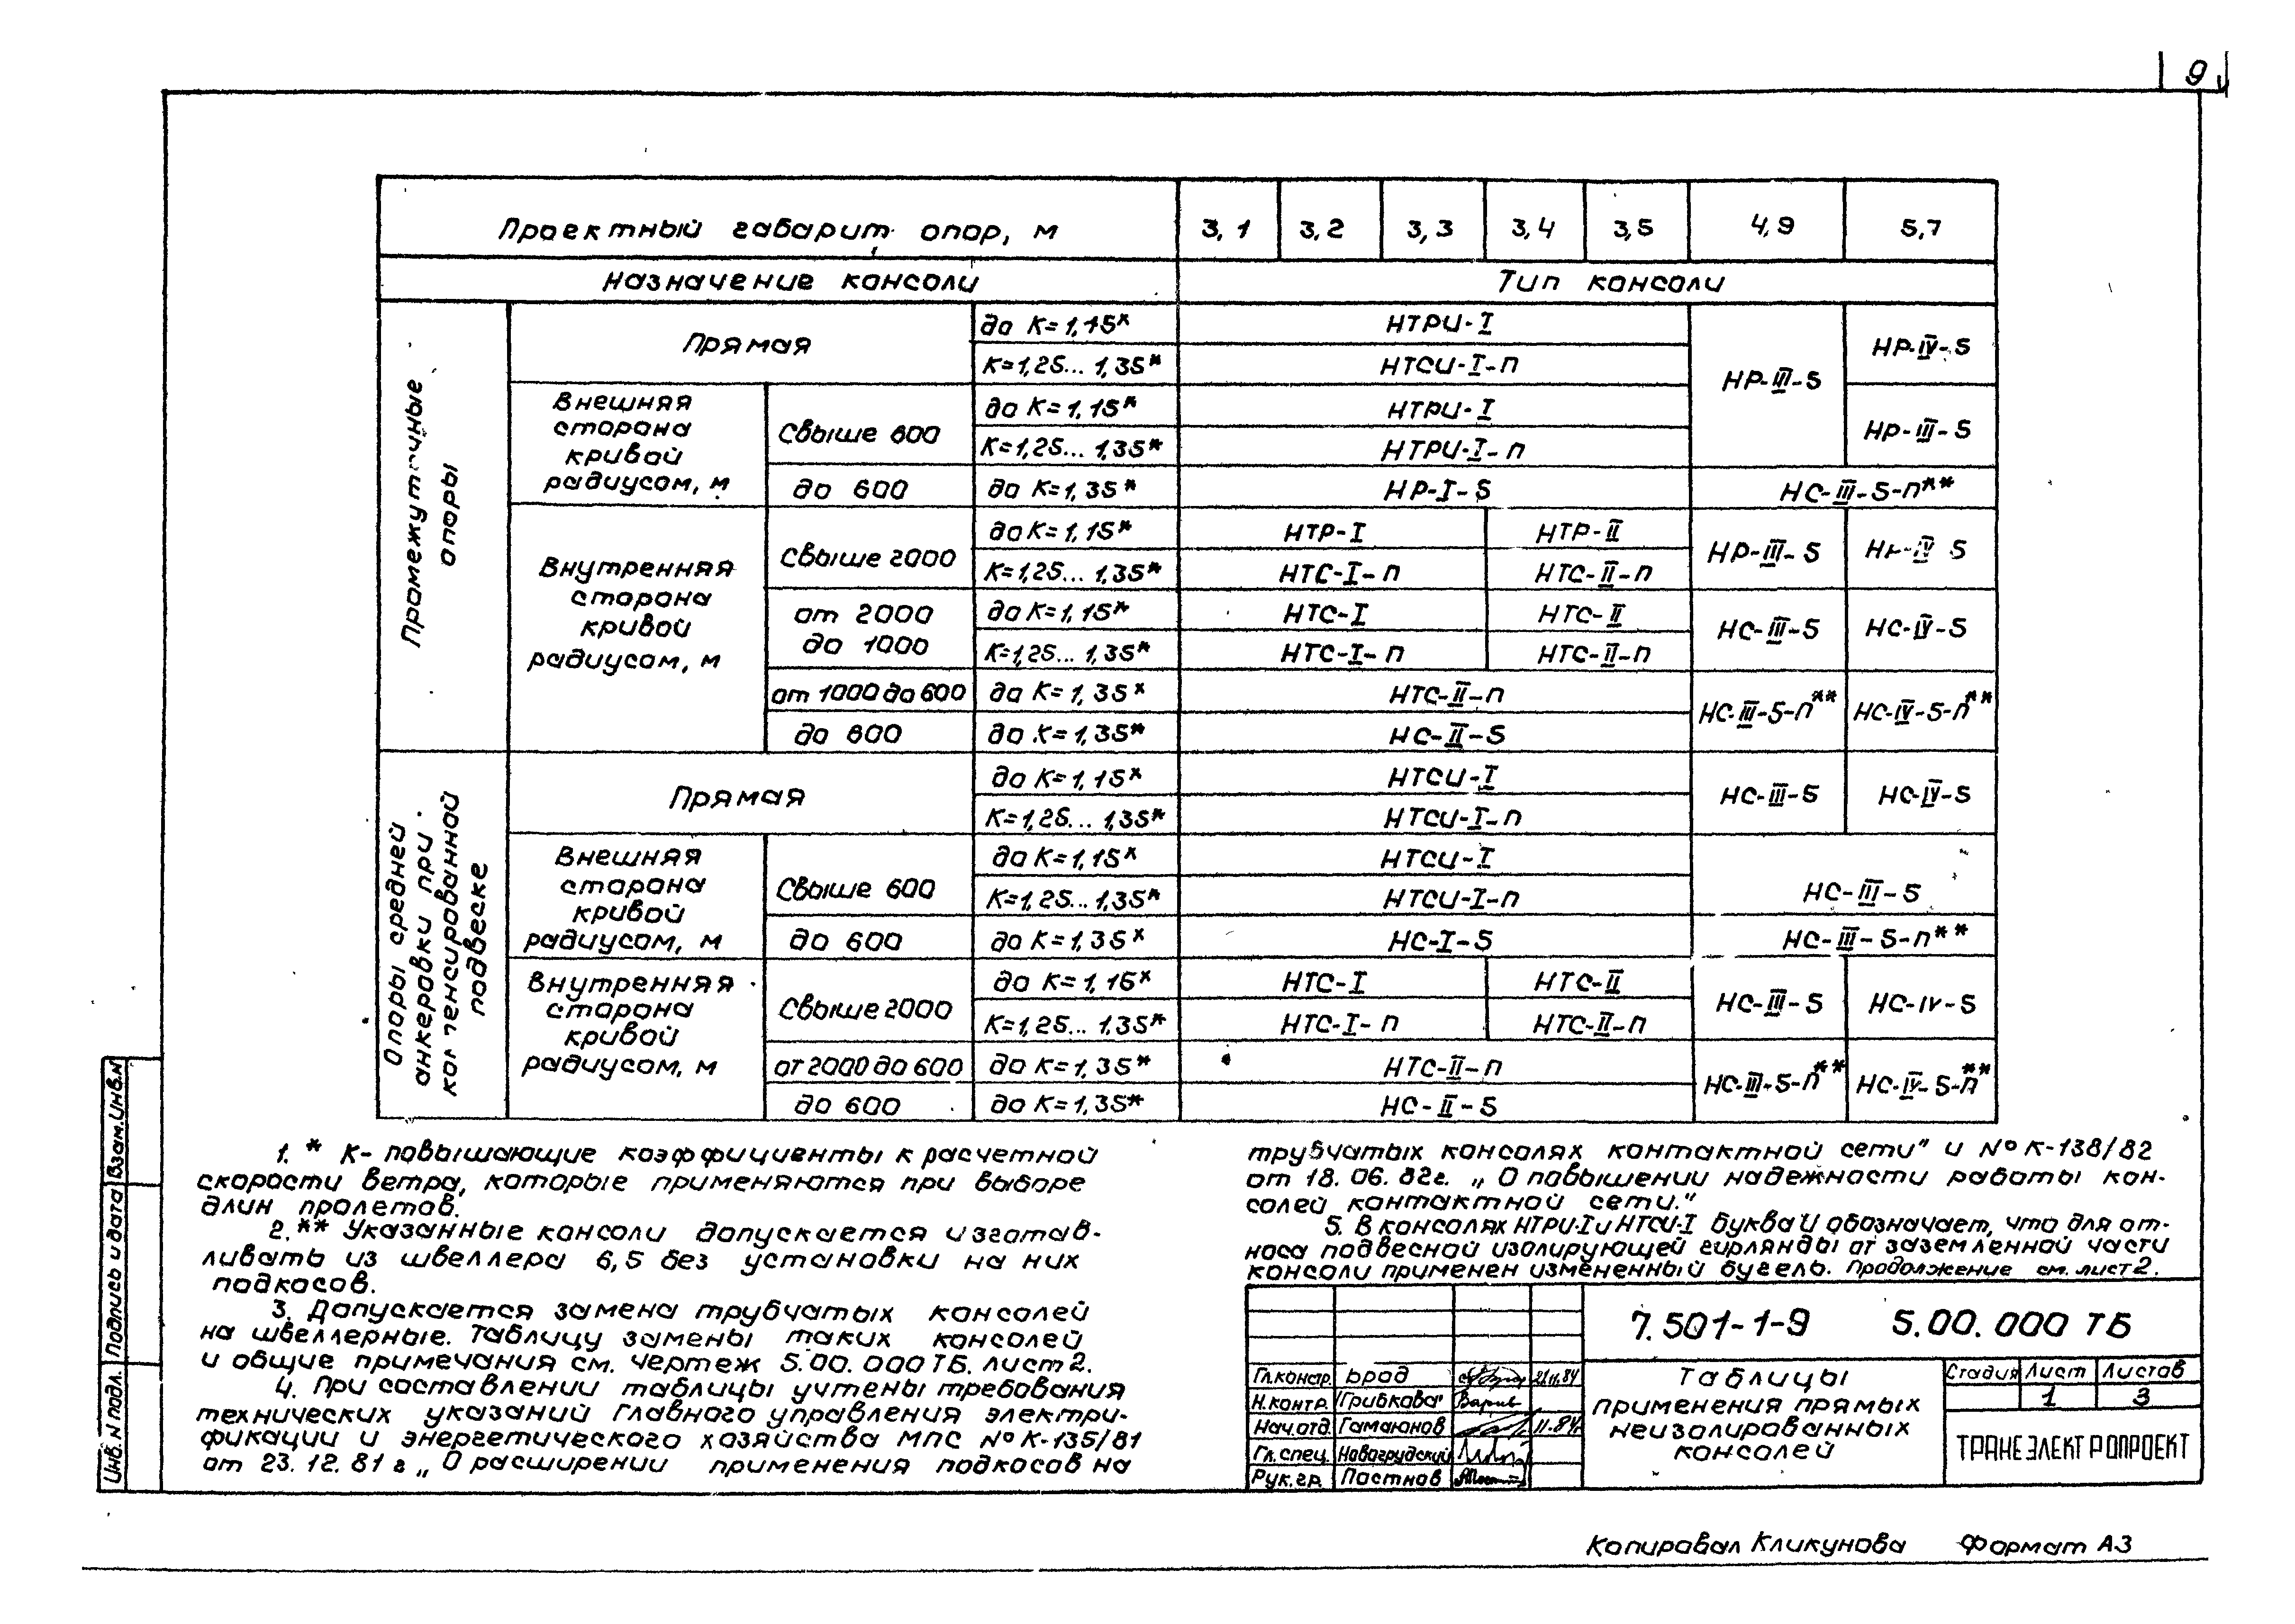 9
Проектный габарит опор, м 3,1 3,2 3,3 3,4 3,5 4,9 5,7
Назначение консоли Тип консоли
Промежуточные опоры
Прямая до К=1,15* НТРИ-I НР-III-5 НР-IV-5
К=1,25...1,35* НТСИ-I-п
Внешняя сторона кривой радиусом, м Свыше 600 до К=1,15* НТРИ-I НР-III-5
К=1,25...1,35* НТРИ-I-п
до 600 до К=1,35* НР-I-5 НС-III-5-п**
Внутренняя сторона кривой радиусом, м Свыше 2000 до К=1,15* НТР-I НТР-II НР-III-5 НР-IV 5
К=1,25...1,35* НТС-I-п НТС-II-п
от 2000 до 1000 до К=1,15* НТС-I НТС-II НС-III-5 НС-IV-5
К=1,25...1,35* НТС-I-п НТС-II-п
от 1000 до 600 до К=1,35* НТС-II-п НС-III-5-п** НС-IV-5-п**
до 600 до К=1,35* НС-II-5
Опоры средней анкеровки при компенсированной подвеске
Прямая до К=1,15* НТСИ-I НС-III-5 НС-IV-5
К=1,25...1,35* НТСИ-I-п
Внешняя сторона кривой радиусом, м Свыше 600 до К=1,15* НТСИ-I НС-III-5
К=1,25...1,35* НТСИ-I-п
до 600 до К=1,35* НС-I-5 НС-III-5-п**
Внутренняя сторона кривой радиусом, м Свыше 2000 до К=1,15* НТС-I НТС-II НС-III-5 НС-IV-5
К=1,25...1,35* НТС-I-п НТС-II-п
от 2000 до 600 до К=1,35* НТС-II-п НС-III-5-п** НС-IV-5-п**
до 600 до К=1,35* НС-II-5
1. * К- повышающие коэффициенты к расчетной
скорости ветра, которые применяются при выборе
длин пролетов.
2. ** Указанные консоли допускается изготав-
ливать из швеллера 6,5 без установки на них
подкосов.
3. Допускается замена трубчатых консолей
на швеллерные. Таблицу замены таких консолей
и общие примечания см. чертеж 5.00.000ТБ. лист 2.
4. При составлении таблицы учтены требования
технических указаний Главного управления электри-
фикации и энергетического хозяйства МПС № К-135/81
от 23.12.81г „О расширении применения подкосов на
трубчатых консолях контактной сети" и № К-138/82
от 18.06.82г. „О повышении надежности работы кон-
солей контактной сети."
5. В консолях НТРИ-I и НТСИ-I буква И обозначает, что для от-
носа подвесной изолирующей гирлянды от заземленной части
консоли применен измененный бугель. Продолжение см. лист 2.
7.501-1-9 5.00.000 ТБ
Гл.констр. Брод 21.11.84
Н.контр. Грибкова
Нач.отд. Гамаюнов 11.84г
Гл.спец. Новогрудский
Рук.гр. Постнов
Таблицы
применения прямых
неизолированных
консолей
Стадия Лист Листов
1 3
ТРАНСЭЛЕКТРОПРОЕКТ
Инв.N подл. Подпись и дата Взам.инв.N
Копировал Кликунова Формат А3